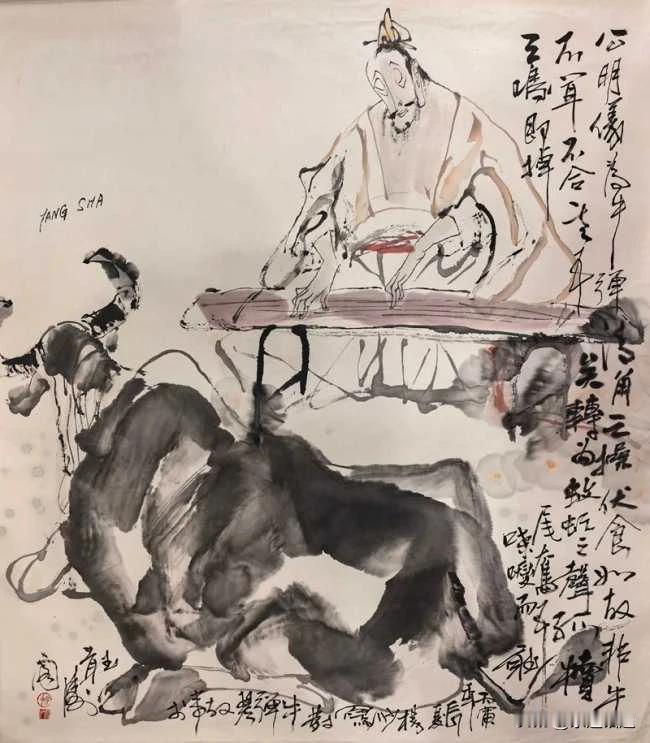 公明儀為牛彈清角之操伏食如故非牛
不聞不合其耳矣轉為蚊虻之聲孤犢
之鳴即掉尾奮耳
蹀躞而聽
寫對牛彈琴故事于
YANG SHA